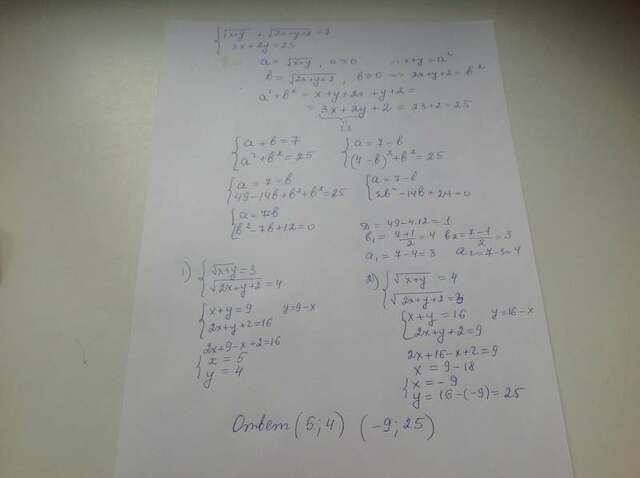 { √x+y + √2x+y+2 = 7
3x+2y=23
a = √x+y , a≥0 ⇒ x+y=a²
b = √2x+y+2 , b≥0 ⇒ 2x+y+2=b²
a²+b² = x+y+2x+y+2=
= 3x+2y+2 = 23+2=25
23
{ a+b=7 { a=7-b
a²+b²=25 (7-b)²+b²=25
{ a=7-b { a=7-b
49-14b+b²+b²=25 2b²-14b+24=0
{ a=7-b
b²-7b+12=0
D=49-4·12=1
b₁= 7+1/2 =4 b₂= 7-1/2 =3
a₁=7-4=3 a₂=7-3=4
1) { √x+y=3
√2x+y+2=4
{ x+y=9 y=9-x
2x+y+2=16
2x+9-x+2=16
{ x=5
y=4
2) { √x+y = 4
√2x+y+2=3
{ x+y=16 y=16-x
2x+y+2=9
2x+16-x+2=9
x = 9-18
{ x=-9
y=16-(-9)=25
Ответ (5;4) (-9;25)